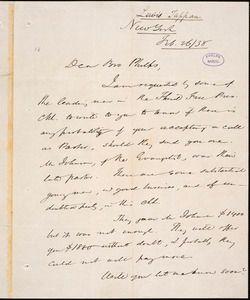 Lewis Tappan
New York
Feb. 26/38
Dear Bro Phelps,
I am requested by some of
the leading men in the Third Free Pres.
Ch. to write to you to know if there is
any probability of your accepting a call
as Pastor, should they send you one.
Mr Johnson, of the Evangelist, was their
late pastor. There are some substantial
young men, in good business, and of un-
doubted piety, in this Ch.
They gave Mr Johnson $1400
but it was not enough. They will offer
you $1800 without doubt, & probably they
could not well pay more.
Will you let me know soon